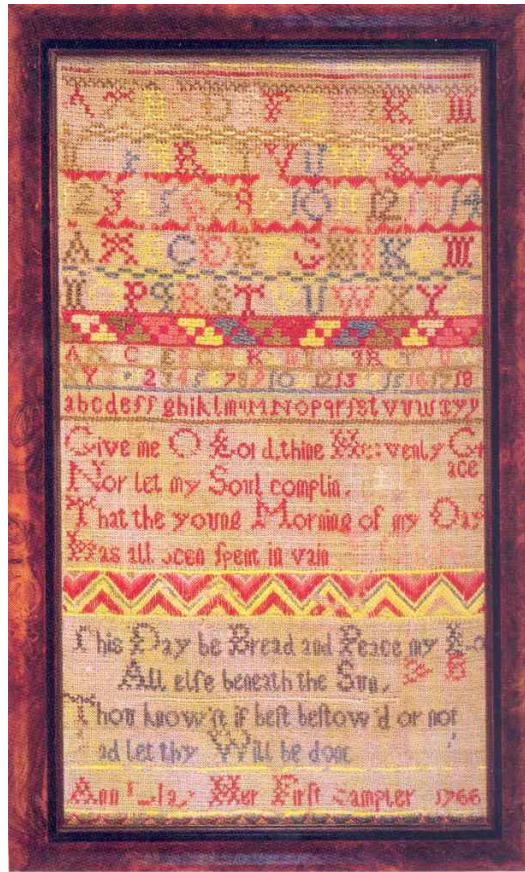 A B D F D K A M
P R T V U W X Y
2 3 4 5 6 7 8 9 10 11 12 14
A C D E G H I K M
P q R S T U W X Y
A C E K q R T
Y 2 3 4 5 6 7 8 9 10 12 13 15 16 17 18
abcdefſ ghiklmnopqrſstvuwxyy
Give me O Lord, thine Heavenly Gr
ace
Nor let my Soul complin,
That the young Morning of my Day
Has all been ſpent in vain
This Day be Bread and Peace my Lo
All elſe beneath the Sun,
Thou know'ſt if beſt beſtow'd or not
ad let thy Will be done
Ann Her Firſt Sampler 1766